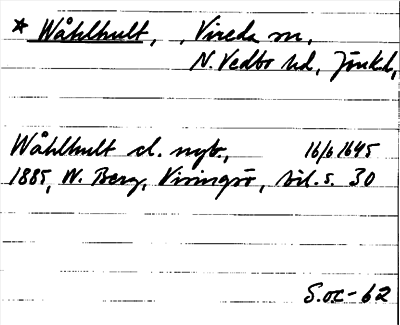 * Wåhlhult, , Vireda sn,
N. Vedbo hd, Jönk.l,
Wåhlhult cl. nyb., 16/6 1645
1885, W. Berg, Visingsö, bil. s. 30
S.oc-62